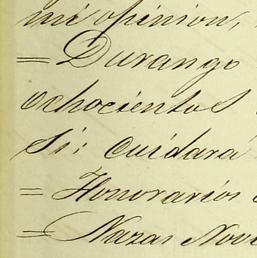 mi opinion,
= Durango
ochocientos
Si: cuidará
= Honorarios
= Nazas Novi